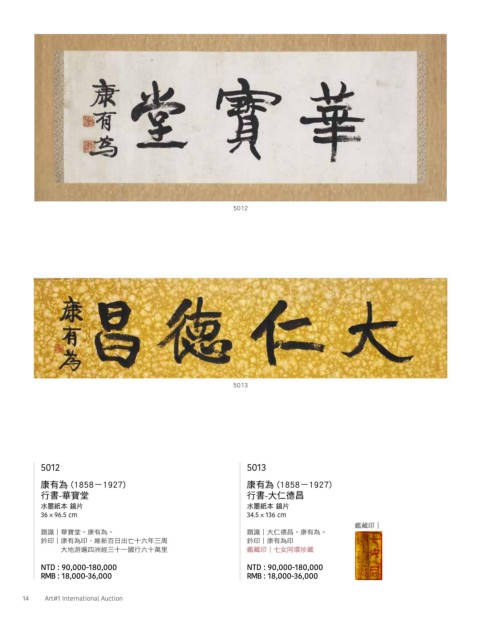 華寶堂
康有為
5012
大仁德昌
康有為
5013
5012
康有為（1858－1927）
行書-華寶堂
水墨紙本 鏡片
36 x 96.5 cm
題識｜華寶堂。康有為。
鈐印｜康有為印、維新百日出亡十六年三周
大地游遍四洲經三十一國行六十萬里
NTD : 90,000-180,000
RMB : 18,000-36,000
5013
康有為（1858－1927）
行書-大仁德昌
水墨紙本 鏡片
34.5 x 136 cm
題識｜大仁德昌。康有為。
鈐印｜康有為印
鑑藏印｜七女同環珍藏
NTD : 90,000-180,000
RMB : 18,000-36,000
鑑藏印｜
14 Art#1 International Auction